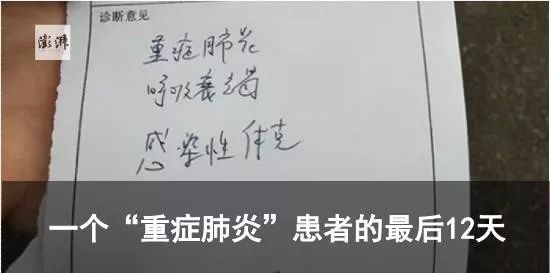 澎湃
诊断意见
重症肺炎
呼吸衰竭
感染性休克
一个“重症肺炎”患者的最后12天